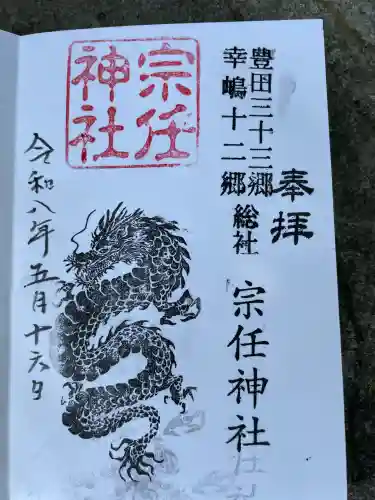 奉拝
豊田三十三郷
幸嶋十二郷
総社
宗任神社
宗任
神社
令和八年五月十六日